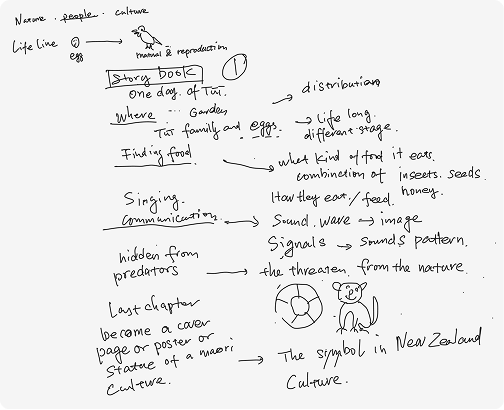 Nature . people . culture
Life Line
egg
manual & reproduction
Story book
1
One day. of Tui.
distributions
Where ... Garden
Tui family and eggs. → Life long.
different stage.
Finding food
what kind of food it eats.
combination of insects. seeds.
honey.
How they eat. / feed.
Singing.
communication. → Sound. wave → image
Signals → sounds pattern.
hidden from
predators → the threaten from the nature.
Last chapter
become a cover
page or poster or
statue of a maori
culture. → The symbol in New Zealand
Culture.